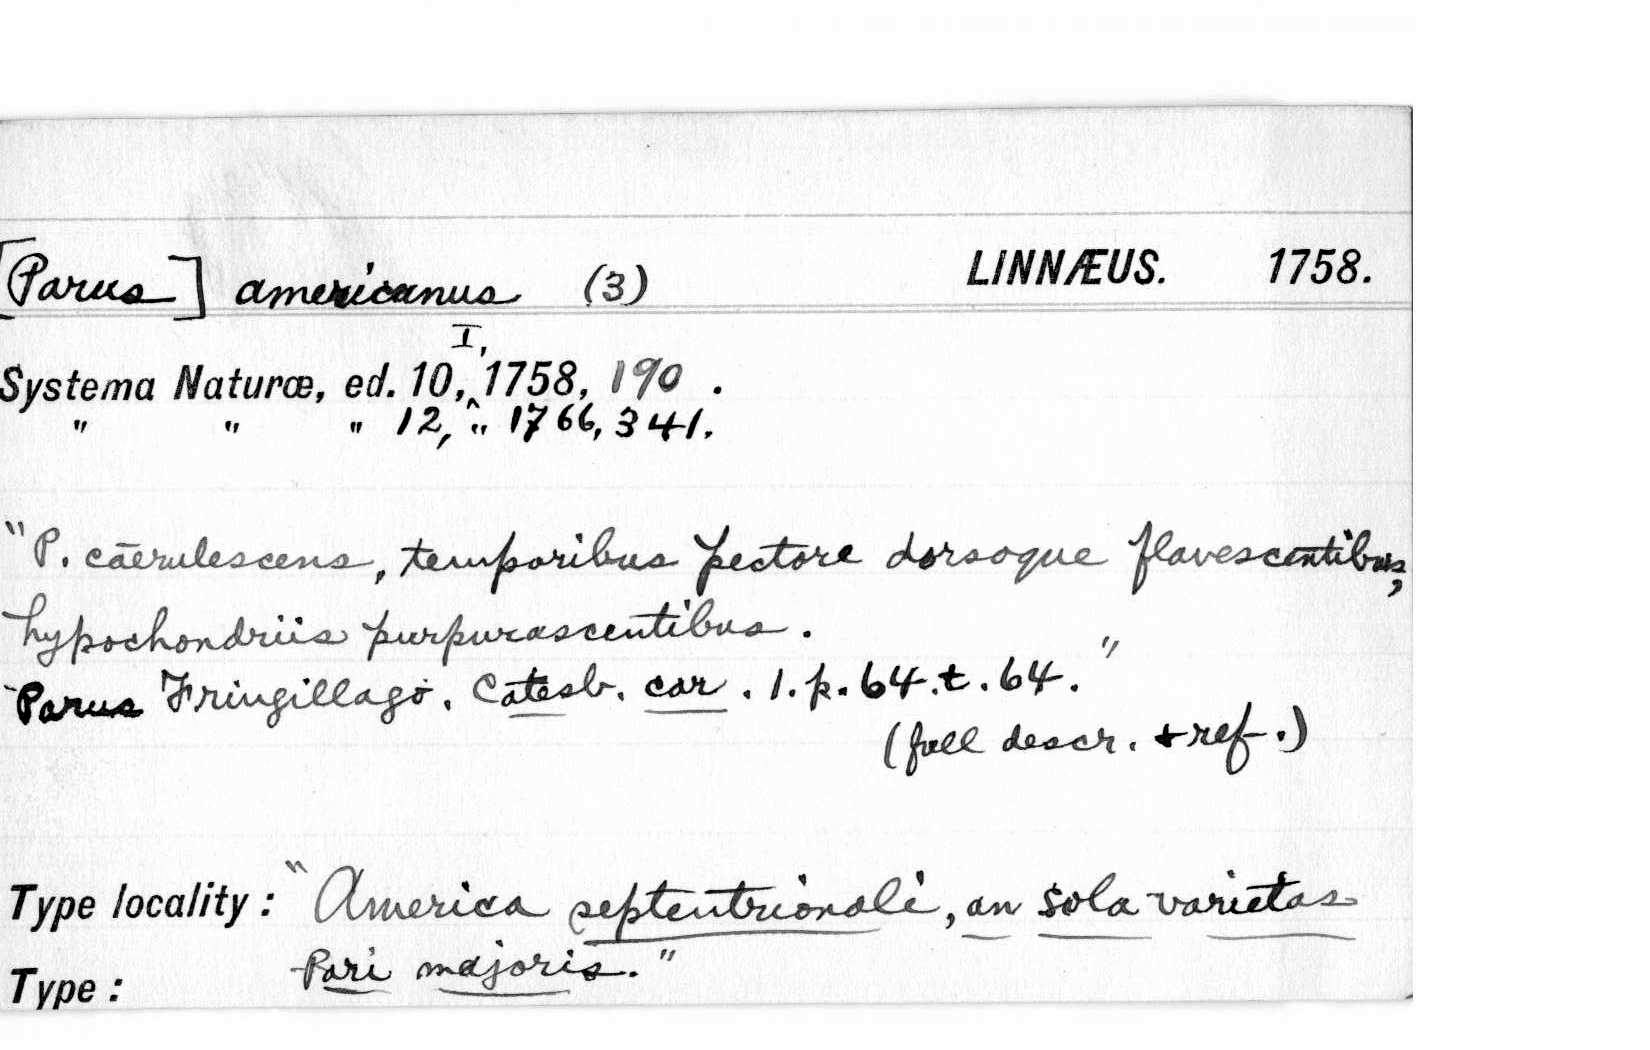 [Parus] americanus (3) LINNÆUS. 1758.
I,
Systema Naturæ, ed. 10,^ 1758, 190 .
" " " 12, " 1766, 341.
"P. cāerulescens, temporibus pectore dorsoque flavescentibus,
hypochondriis purpurascentibus .
Parus Fringillago. Catesb. car . 1. p. 64. t. 64. "
(full descr. + ref.)
Type locality : "America septentrionali, an sola varietas
Pari majoris."
Type :